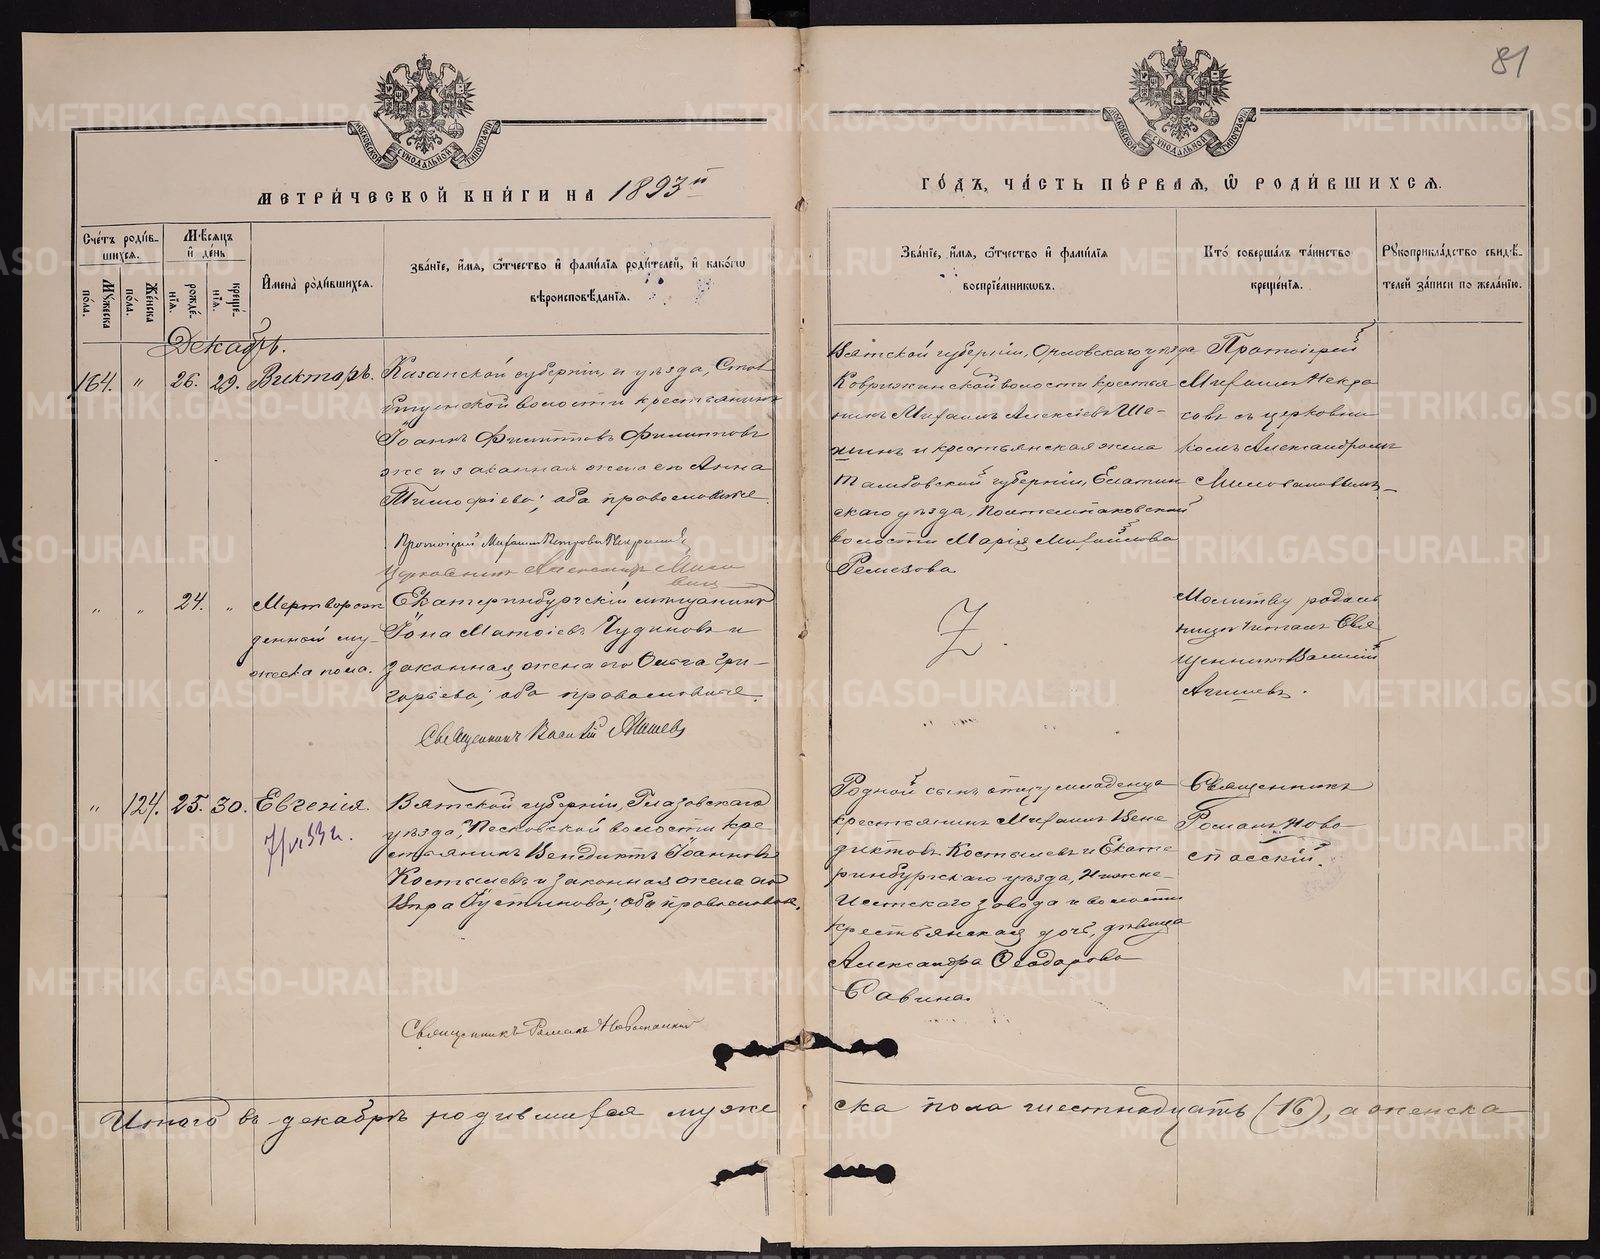 81
МОСКОВСКОЙ СѴНОДАЛЬНОЙ ТИПОГРАФІИ
МОСКОВСКОЙ СѴНОДАЛЬНОЙ ТИПОГРАФІИ
МЕТРИ́ЧЕСКОЙ КНИ́ГИ НА 1893й
ГО́ДЪ, ЧА́СТЬ ПЕ́РВАЯ, Ѡ РОДИ́ВШИХСЯ.
Сче́тъ роди́в-
шихся.
Му́жеска по́ла.
Же́нска по́ла.
Мѣ́сяцъ
и҆ де́нь
рожде́-
нїѧ.
креще́-
нїѧ.
И҆мена̀ роди́вшихся.
Зва́нїе, и҆́мя, ѻ҆́тчество и҆ фами́лїя роди́телей, и҆ како́гѡ
вѣроисповѣ́данїя.
Зва́нїе, и҆́мя, ѻ҆́тчество и҆ фами́лїя
воспрїе́мникѡвъ.
Кто̀ соверша́лъ та́инство
креще́нїя.
Рꙋкоприкла́дство свидѣ́-
телей за́писи по жела́нїю.
Декабрь.
164. " 26. 29. Викторъ.
Казанской губерніи, и уѣзда,
волости крестьянинъ
Іоаннъ Филипповъ Филипповъ
же и законная жена его Анна
Тимофіева; оба православные.
Протоіерей Михаилъ Петровъ Некрасовъ
Церковникъ Александръ
Вятской губерніи, Орловскаго уѣзда
Ковригинской волости крестья
нинъ Михаилъ Алексіевъ Ше-
шинъ и крестьянская жена
Тамбовской губерніи, Елатом
скаго уѣзда,
волости Марія Михаилова
Ремезова
Протоіерей
Михаилъ Некра
совъ съ церковни
комъ Александромъ
Миловановымъ
" " 24. " Мертворож
денный му-
жеска пола.
Екатеринбургскій мѣщанинъ
Іона Матвіевъ Чудиновъ и
законная жена его Ольга Гри-
горьева; оба православные.
Священникъ Василій Агишевъ
Z.
Молитву родиль
ницѣ читалъ Свя
щенникъ Василій
Агишевъ.
" 124. 25. 30. Евгенія.
7/VI 33 г.
Вятской губерніи, Глазовскаго
уѣзда, Песковской волости кре
стьянинъ Венедиктъ Іоанновъ
Костылевъ и законная жена его
Вѣра Іустинова; оба православные.
Священникъ Романъ Новоспасскій
Родной сынъ отцу младенца
крестьянинъ Михаилъ Вене
диктовъ Костылевъ и Екате
ринбургскаго уѣзда, Нижне-
Исетскаго завода и волости
крестьянская дочь, дѣвица
Александра Ѳеодорова
Савина.
Священникъ
Романъ Ново
спасскій.
Итого въ декабрѣ родившихся муже
ска пола шестнадцать (16), а женска